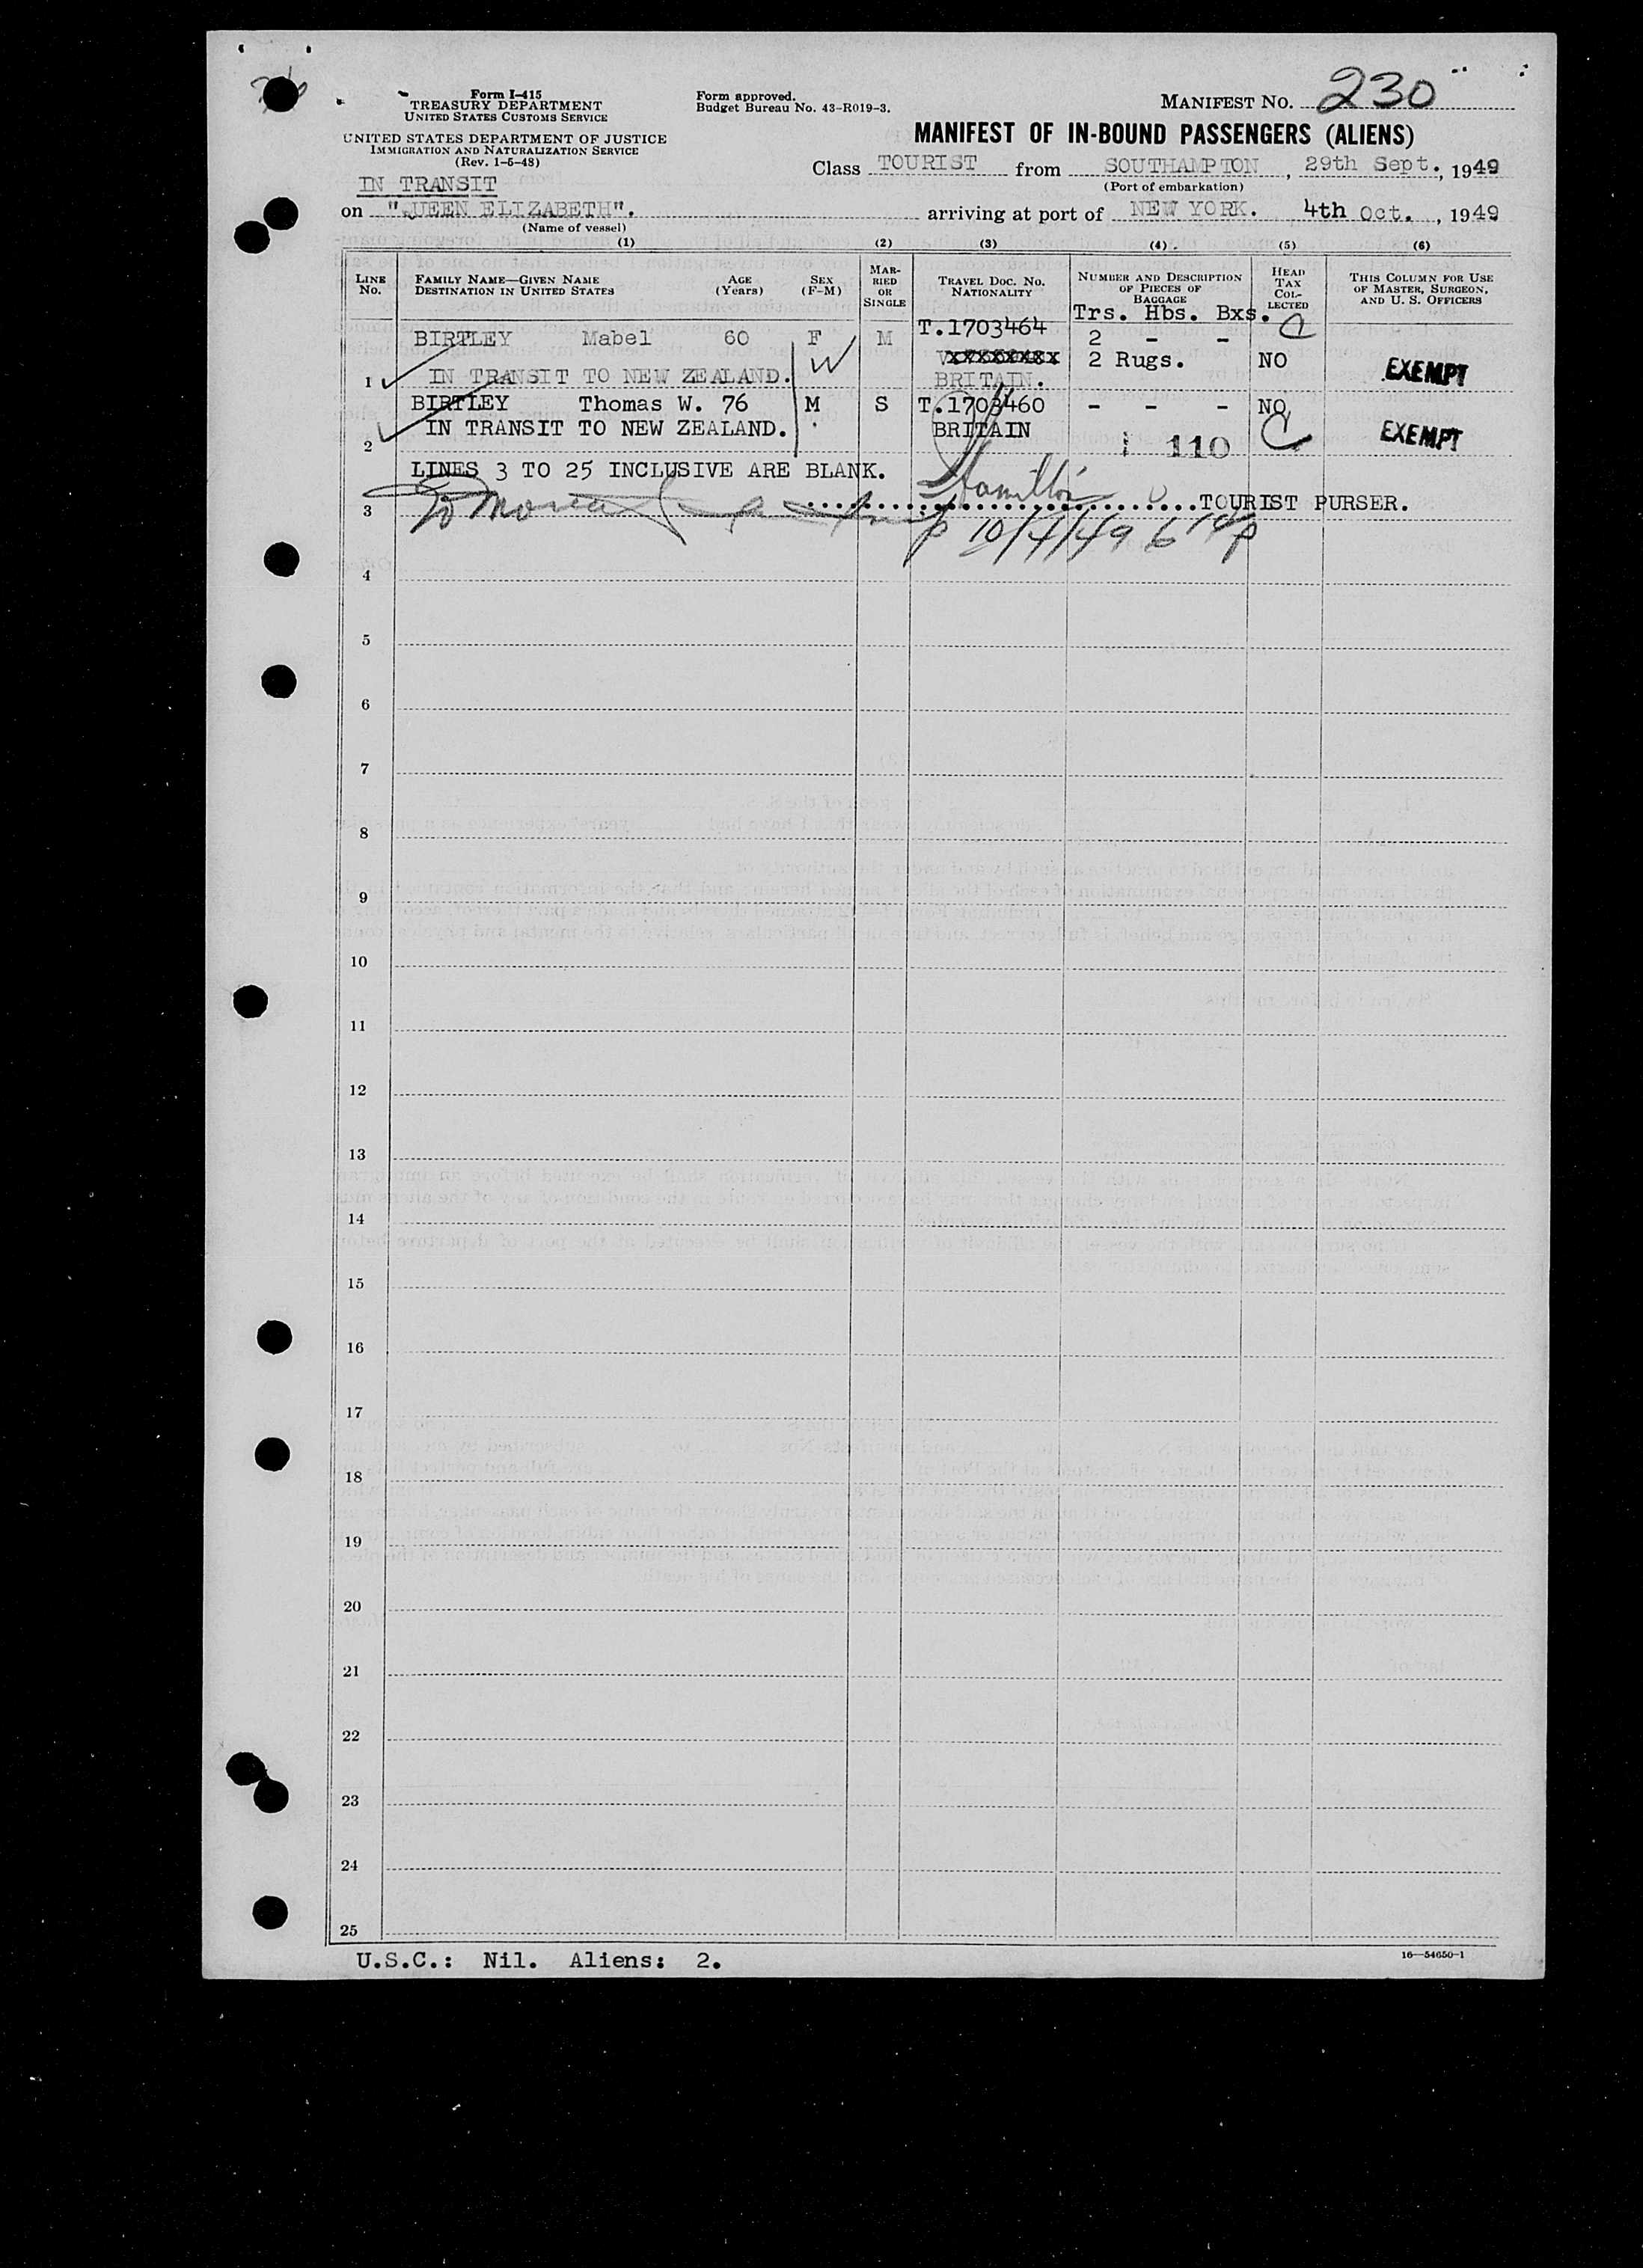 Form I-415
TREASURY DEPARTMENT
UNITED STATES CUSTOMS SERVICE
UNITED STATES DEPARTMENT OF JUSTICE
IMMIGRATION AND NATURALIZATION SERVICE
(Rev. 1-5-48)
Form approved.
Budget Bureau No. 43-R019-3.
MANIFEST NO. 230
MANIFEST OF IN-BOUND PASSENGERS (ALIENS)
Class TOURIST from SOUTHAMPTON, 29th Sept., 1949
(Port of embarkation)
IN TRANSIT
on "QUEEN ELIZABETH". arriving at port of NEW YORK. 4th Oct., 1949
(Name of vessel)
(1) (2) (3) (4) (5) (6)
LINE NO. FAMILY NAME—GIVEN NAME DESTINATION IN UNITED STATES AGE (Years) SEX (F-M) MARRIED OR SINGLE TRAVEL DOC. NO. NATIONALITY NUMBER AND DESCRIPTION OF PIECES OF BAGGAGE HEAD TAX COLLECTED THIS COLUMN FOR USE OF MASTER, SURGEON, AND U. S. OFFICERS
Trs. Hbs. Bxs.
BIRTLEY Mabel 60 F M T.1703464 2 - -
2 Rugs. NO EXEMPT
1 IN TRANSIT TO NEW ZEALAND. BRITAIN.
BIRTLEY Thomas W. 76 M S T.1703460 - - - NO
2 IN TRANSIT TO NEW ZEALAND. BRITAIN 110 EXEMPT
LINES 3 TO 25 INCLUSIVE ARE BLANK.
3 Hamilton TOURIST PURSER.
10/4/49
4
5
6
7
8
9
10
11
12
13
14
15
16
17
18
19
20
21
22
23
24
25
U.S.C.: Nil. Aliens: 2.
16—54650-1